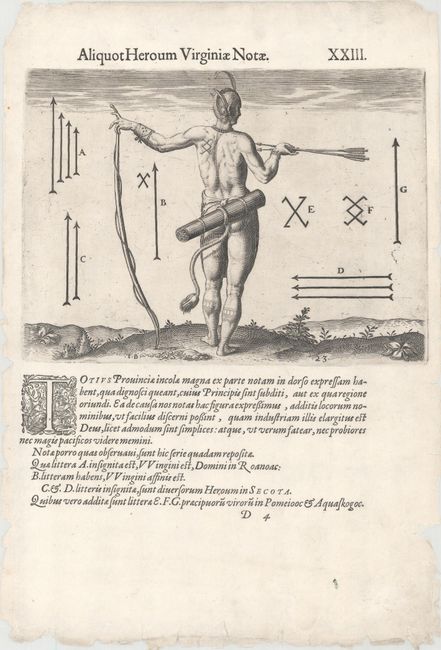 Aliquot Heroum Virginiæ Notæ. XXIII.
A
B
C
E
F
G
D
T B
23
TOTIVS Provinciæ incolæ magna ex parte notam in dorso expressam ha-
bent, qua dignosci queant, cuius Principis sint subditi, aut ex qua regione
oriundi. Ea de causa nos notas hac figura expressimus, additis locorum no-
minibus, vt facilius discerni possint, quam industriam illis elargitus est
Deus, licet admodum sint simplices: atque, vt verum fatear, nec probiores
nec magis pacificos videre memini.
Notæ porro quas observaui, sunt hic serie quadam repositæ.
Qua littera A. insignita est, VVingini est, Domini in Roanoac:
B. litteram habens, VVingini affinis est.
C. & D. litteris insignita, sunt diversorum Heroum in SECOTA.
Quibus vero additæ sunt litteræ E. F. G. præcipuorũ virorũ in Pomeiooc & Aquaskogoc.
D 4